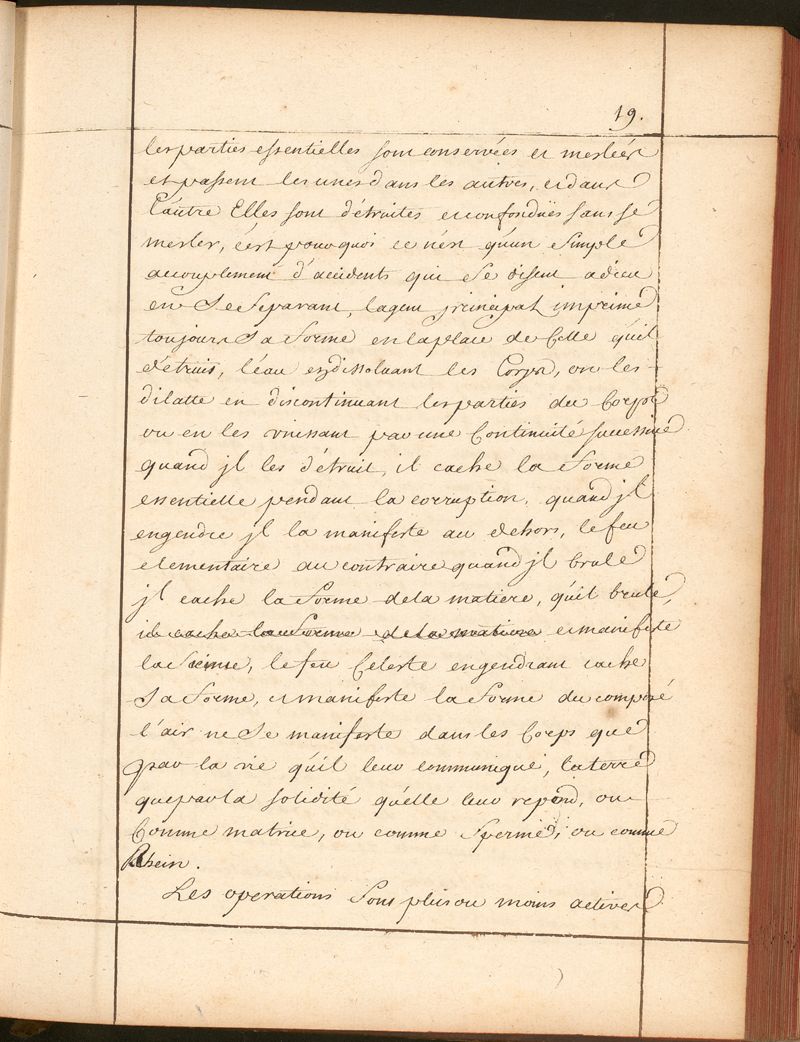 19.
les parties essentielles sont conservées et meslées
et passent les unes dans les autres, et dans
l'autre Elles sont détruites et confonduës sans se
mesler, c'est pourquoi ce n'est qu'un simple
accouplement d'accidents qui se disent adieu
en se separant, l'agent principal imprime
toujours sa forme en la place de Celle qu'il
détruit, l'eau en dissoluant les Corps, ou les
dilatte en discontinuant les parties du Corps
ou en les vnissant par une Continuité successiue
quand jl les détruit, il cache la forme
essentielle pendant la corruption, quand jl
engendre jl la manifeste au dehors, le feu
elementaire au contraire quand jl brule
jl cache la forme de la matiere, qu'il brule,
il cache la forme de la matiere et manifeste
la sienne, le feu Celeste engendrant cache
sa forme, et manifeste la forme du composé
l'air ne se manifeste dans les Corps que
par la vie qu'il leur communique, la terre
que par la solidité qu'elle leur repond, ou
Comme matrice, ou comme sperme, ou comme

Les operations sont plus ou moins actives